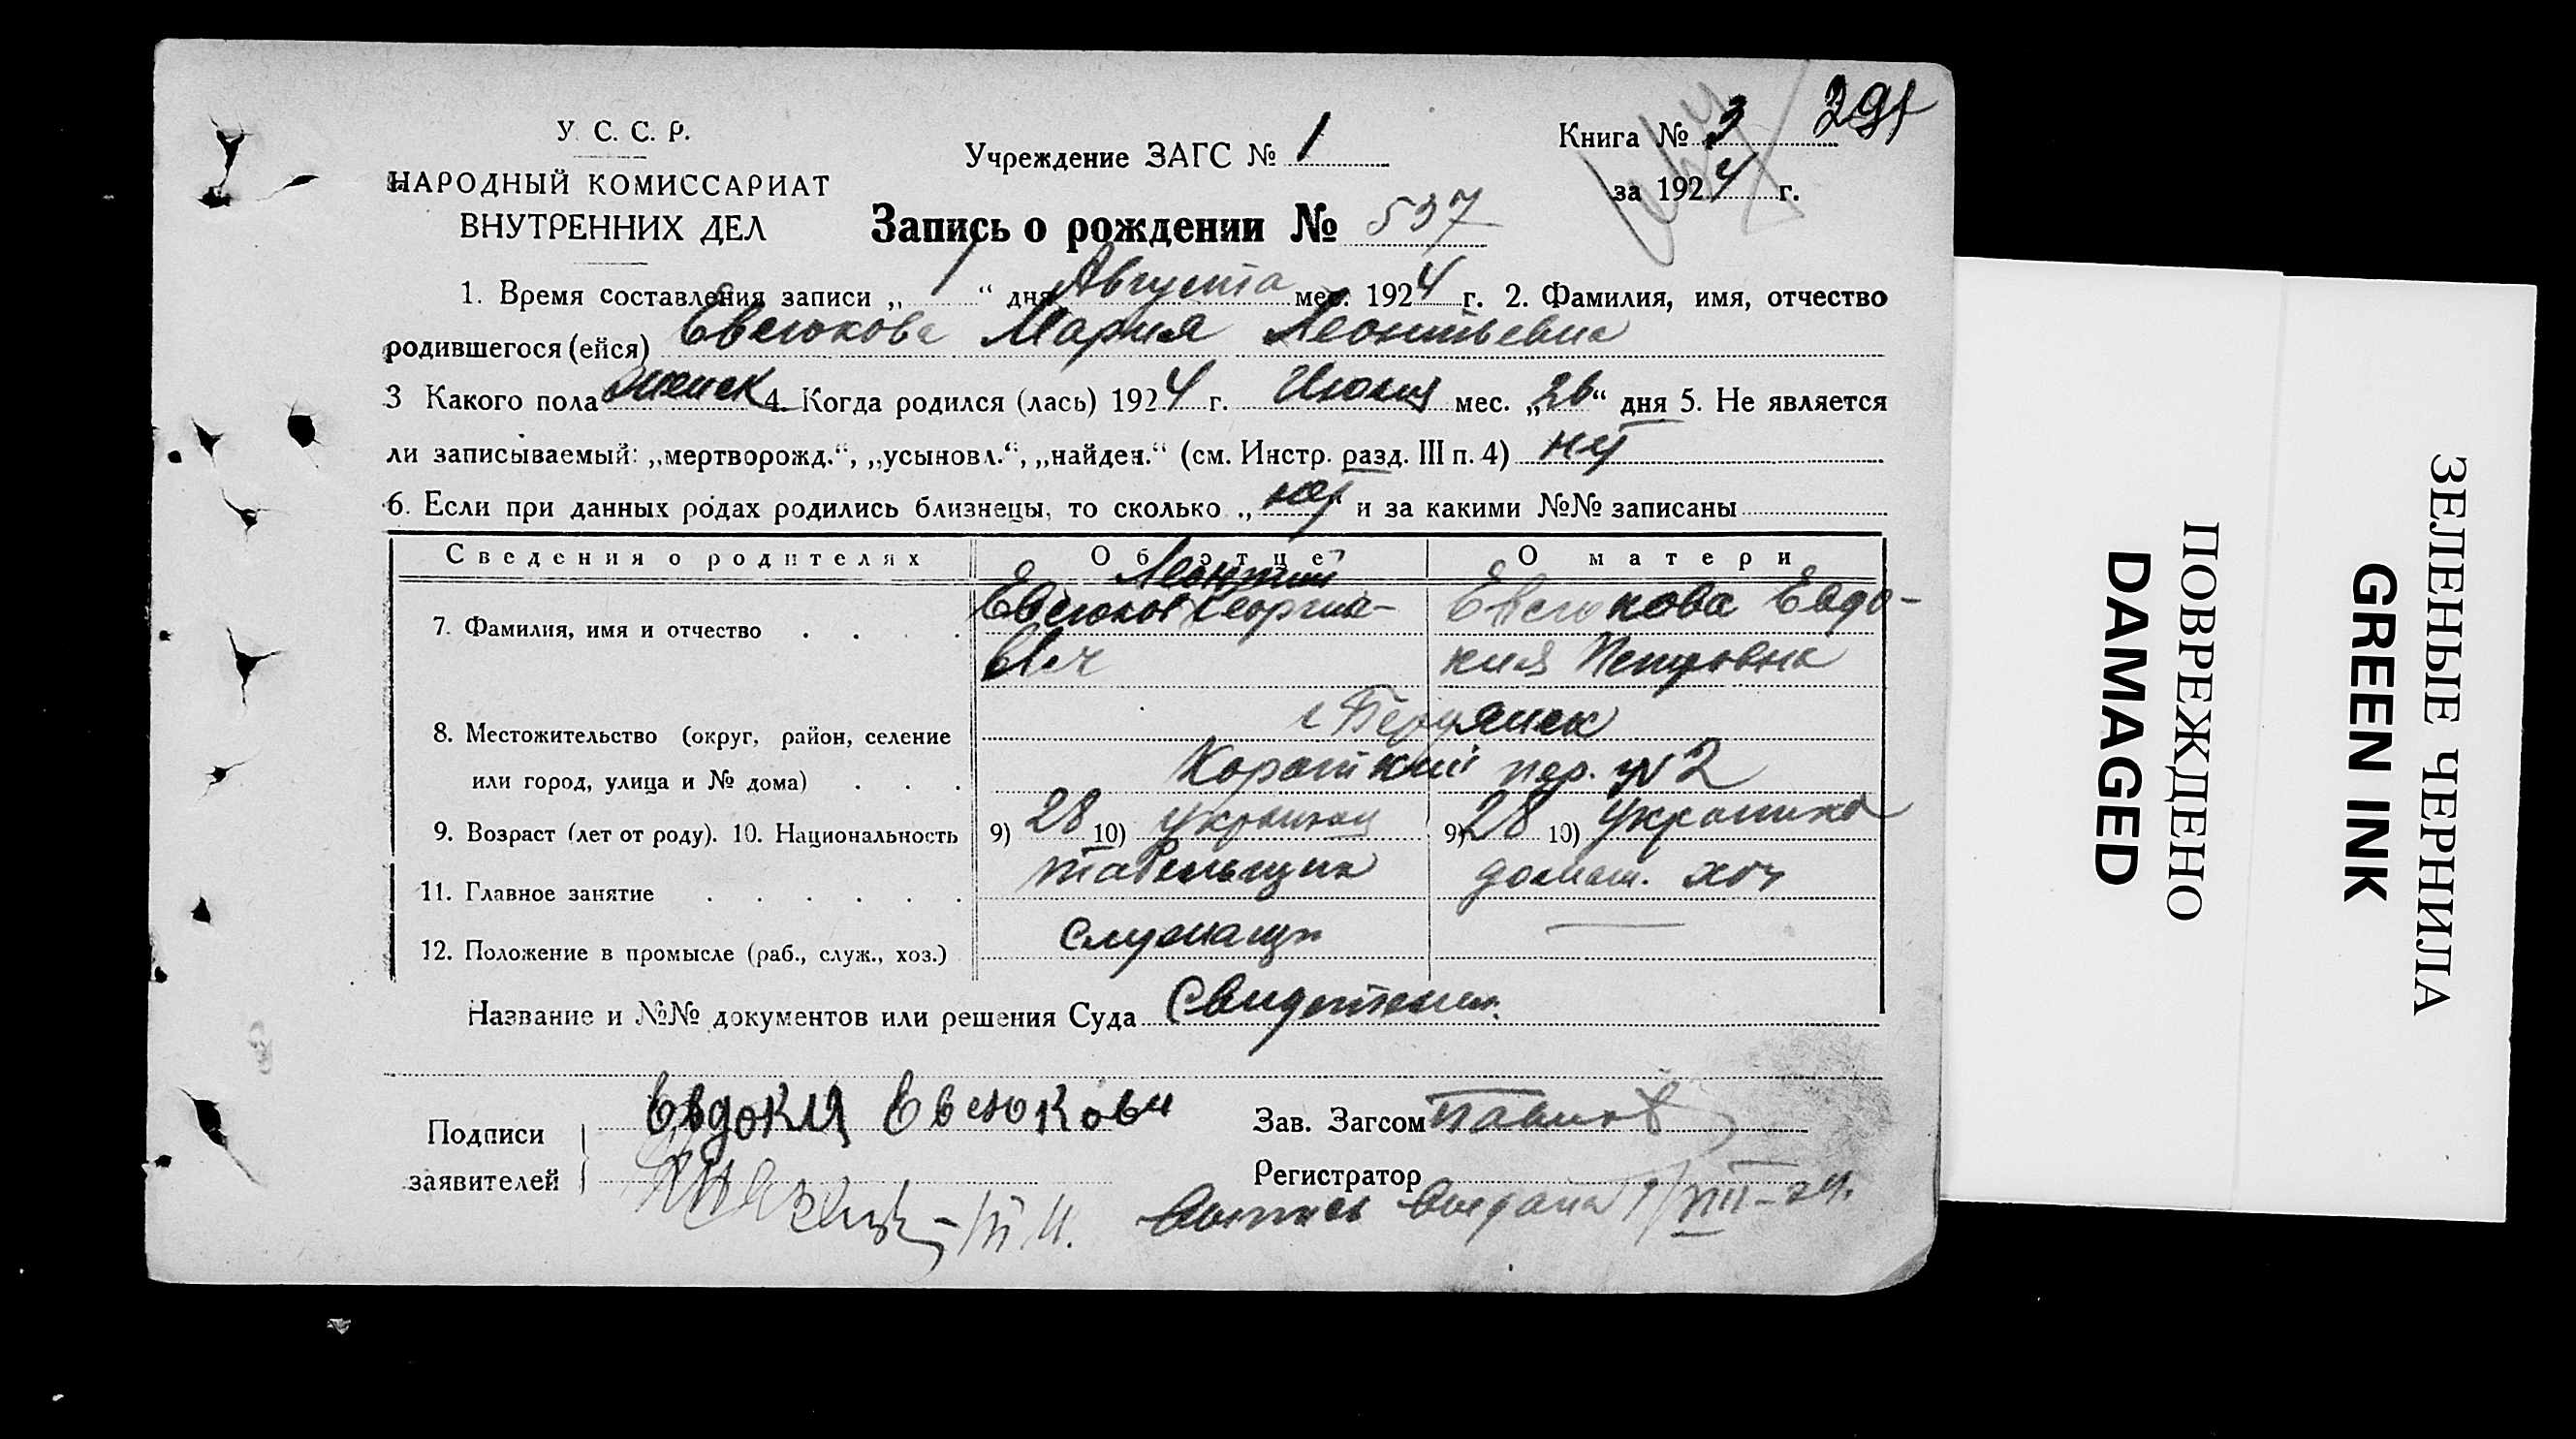 У. С. С. Р.
НАРОДНЫЙ КОМИССАРИАТ
ВНУТРЕННИХ ДЕЛ
Учреждение ЗАГС № 1
Книга № 3
за 1924 г.
Запись о рождении № 537
1. Время составления записи „1“ дня Августа мес. 1924 г. 2. Фамилия, имя, отчество
родившегося (ейся) Евсюкова Мария Леонтьевна
3 Какого пола женск 4. Когда родился (лась) 1924 г. Июля мес. „26“ дня 5. Не является
ли записываемый: „мертворожд.“, „усыновл.“, „найден.“ (см. Инстр. разд. III п. 4) нет
6. Если при данных родах родились близнецы, то сколько „нет“ и за какими №№ записаны
Сведения о родителях Об отце О матери
Леонтий
7. Фамилия, имя и отчество Евсюков Георгие- Евсюкова Евдо-
вич кия Петровна
г Бердянск
8. Местожительство (округ, район, селение
или город, улица и № дома) Короткий пер. № 2
9. Возраст (лет от роду). 10. Национальность 9) 28 10) украинец 9) 28 10) украинка
11. Главное занятие табельщик домаш. хоз
12. Положение в промысле (раб., служ., хоз.) служащи —
Название и №№ документов или решения Суда
Подписи Евдокия Евсюкова Зав. Загсом Павлов
заявителей Регистратор
выдана 1/VIII-24.
ПОВРЕЖДЕНО
DAMAGED
ЗЕЛЕНЫЕ ЧЕРНИЛА
GREEN INK